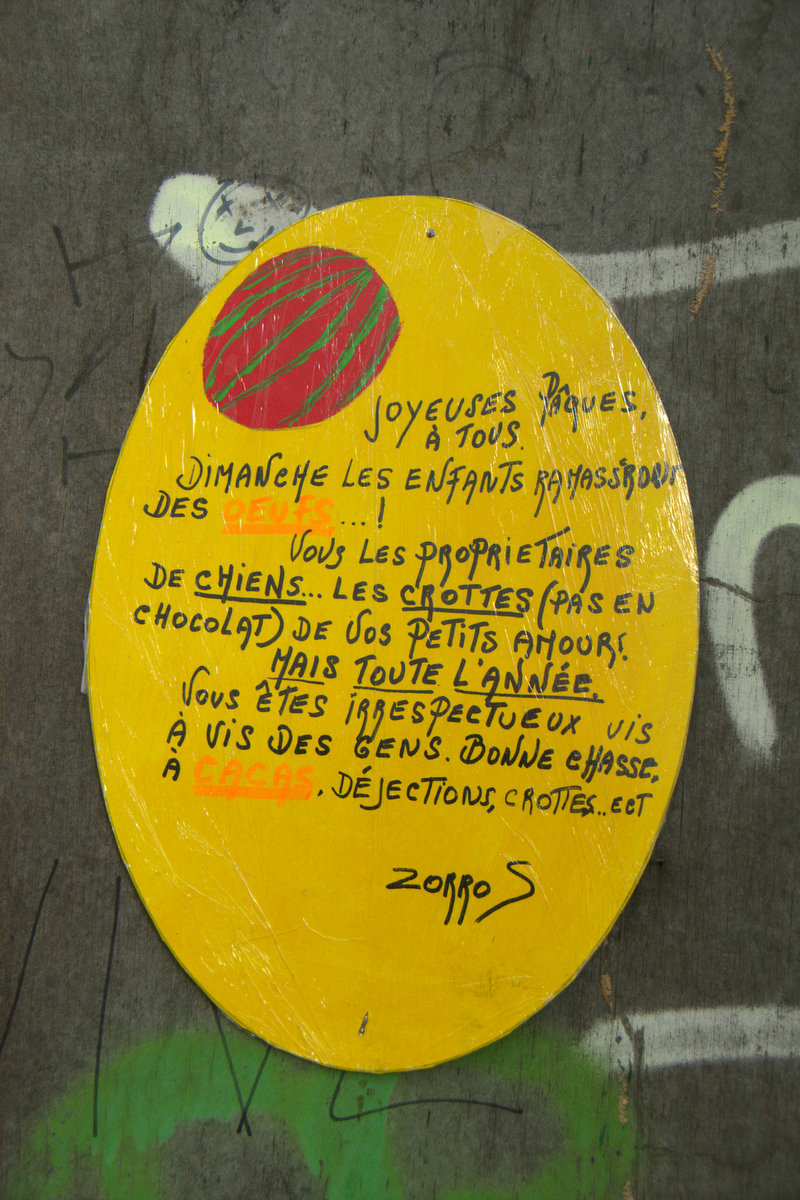 JOYEUSES PÂQUES,
À TOUS.
DIMANCHE LES ENFANTS RAMASS'RONT
DES OEUFS...!
VOUS LES PROPRIETAIRES
DE CHIENS... LES CROTTES (PAS EN
CHOCOLAT) DE VOS PETITS AMOUR!
MAIS TOUTE L'ANNÉE.
VOUS ÊTES IRRESPECTUEUX VIS
À VIS DES GENS. BONNE CHASSE,
À CACAS. DÉJECTIONS, CROTTES... ECT
ZORRO S